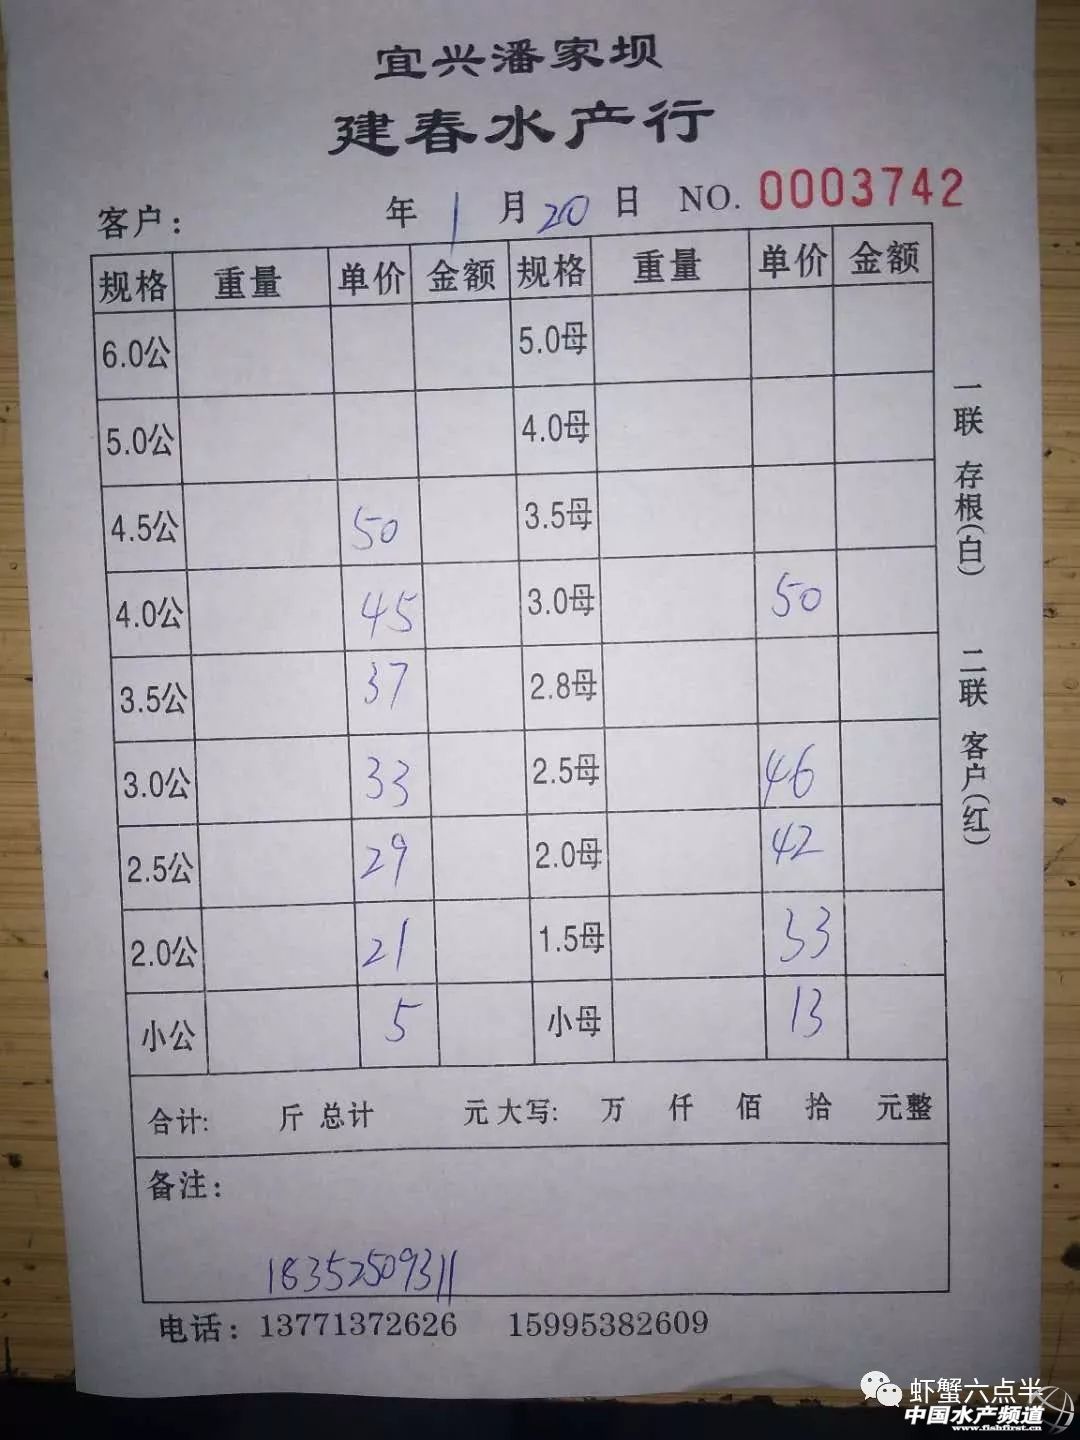 宜兴潘家坝
建春水产行
客户： 年 1 月 20 日 NO. 0003742
规格 重量 单价 金额 规格 重量 单价 金额
6.0公 5.0母
5.0公 4.0母
4.5公 50 3.5母
4.0公 45 3.0母 50
3.5公 37 2.8母
3.0公 33 2.5母 46
2.5公 29 2.0母 42
2.0公 21 1.5母 33
小公 5 小母 13
合计: 斤 总计 元 大写: 万 仟 佰 拾 元整
备注：
18352509311
电话：13771372626 15995382609
一联 存根(白) 二联 客户(红)
虾蟹六点半
中国水产频道
www.fishfirst.cn